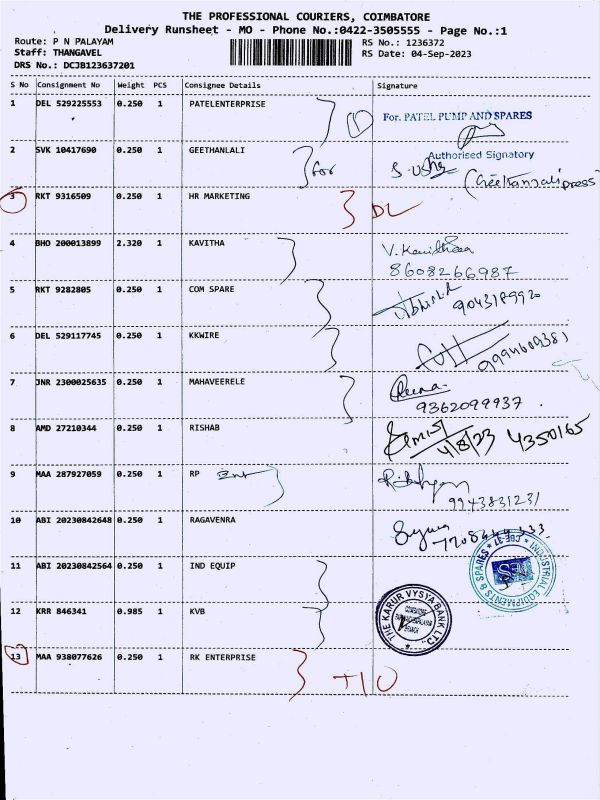 THE PROFESSIONAL COURIERS, COIMBATORE
Delivery Runsheet - MO - Phone No.:0422-3505555 - Page No.:1
Route: P N PALAYAM
Staff: THANGAVEL
DRS No.: DCJB123637201
RS No.: 1236372
RS Date: 04-Sep-2023
S No Consignment No Weight PCS Consignee Details Signature
1 DEL 529225553 0.250 1 PATELENTERPRISE
For. PATEL PUMP AND SPARES
Authorised Signatory
2 SVK 10417690 0.250 1 GEETHANLALI for
S. Usha
(Geethanjali press
3 RKT 9316509 0.250 1 HR MARKETING DL
4 BHO 200013899 2.320 1 KAVITHA
V. Kavithaa
8608266987
5 RKT 9282805 0.250 1 COM SPARE
9043189920
6 DEL 529117745 0.250 1 KKWIRE
9994609381
7 JNR 2300025635 0.250 1 MAHAVEERELE
9362099937
8 AMD 27210344 0.250 1 RISHAB
4/8/23 4350165
9 MAA 287927059 0.250 1 RP Ent
9943831231
10 ABI 20230842648 0.250 1 RAGAVENRA
11 ABI 20230842564 0.250 1 IND EQUIP
INDUSTRIAL EQUIPMENTS & SPARES * CBE-37 *
12 KRR 846341 0.985 1 KVB
THE KARUR VYSYA BANK LTD
13 MAA 938077626 0.250 1 RK ENTERPRISE